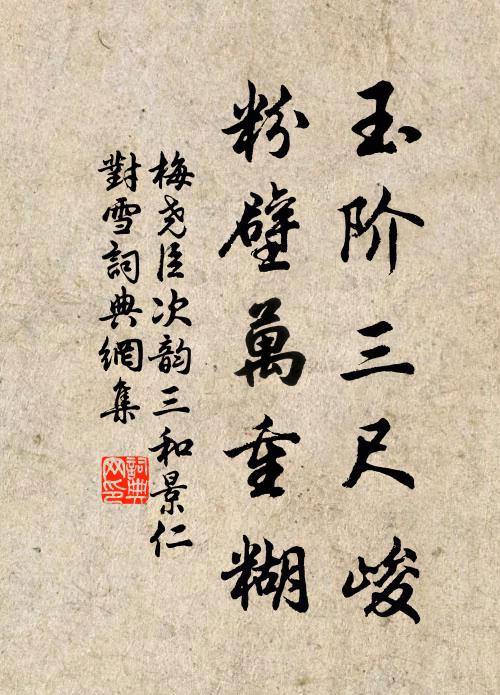 玉阶三尺峻
粉壁萬重糊
梅尧臣次韵三和景仁
對雪詞典網集
詞典网印